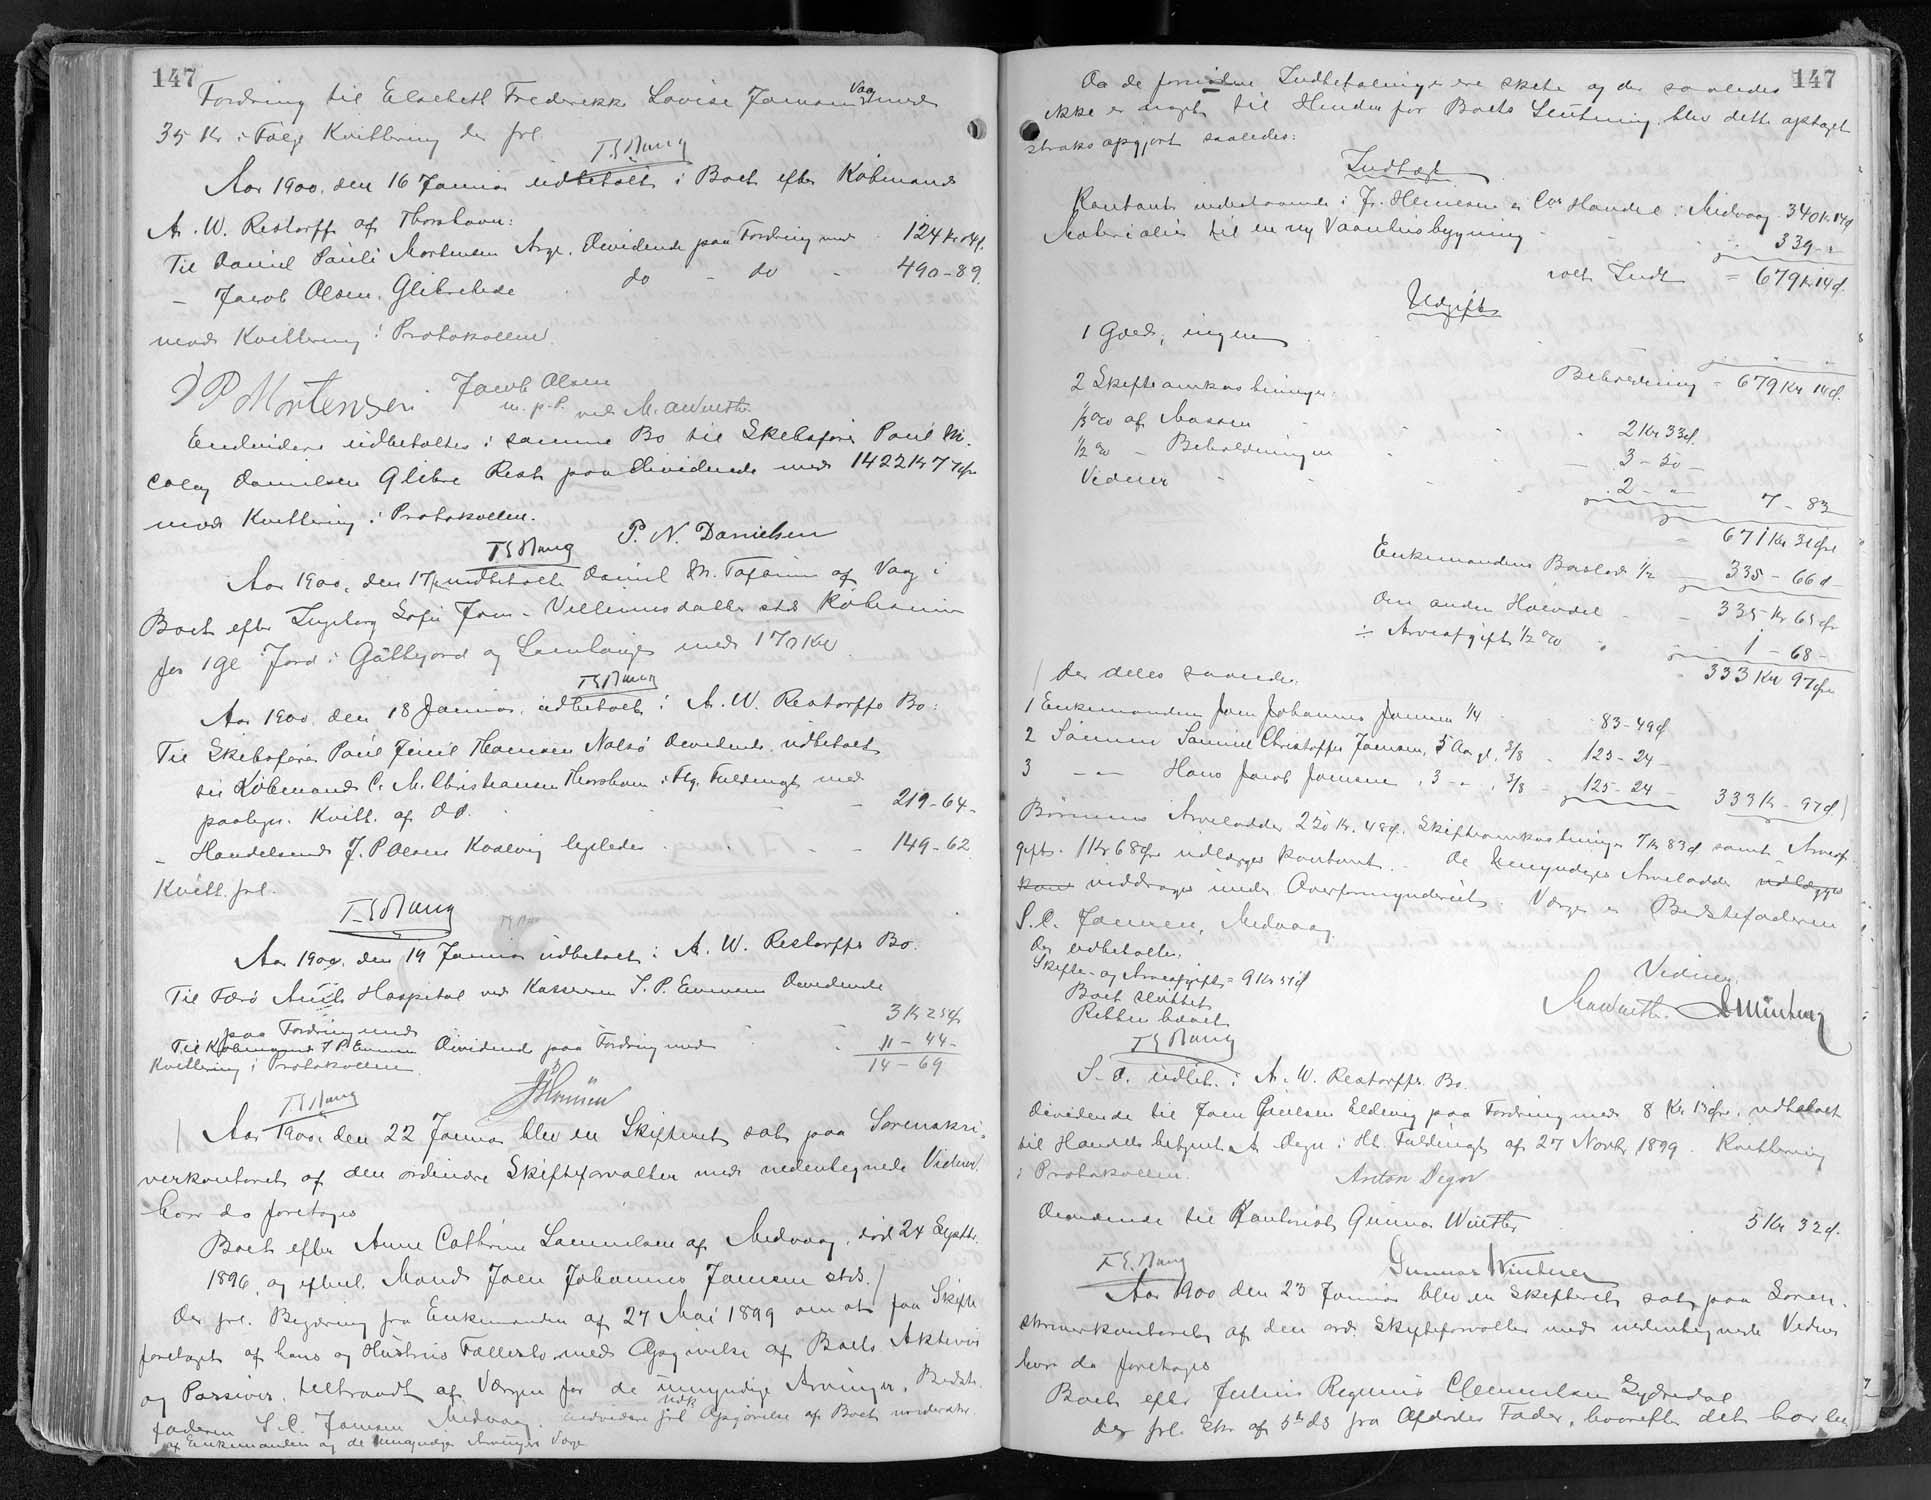 147
Fordring til Elsebeth Frederikke Lovise Joensen Vaag med
35 Kr i Følge Kvittering der frl.
Aar 1900, den 16 Januar udbetalt i Boet efter Købmand
A. W. Restorff af Thorshavn:
Til Daniel Pauli Mortensen Arge, Dividende paa Fordring med 124 Kr 04 d.
– Jacob Olsen, Glibrehede do – do – 490–89
mod Kvittering i Protokollen.
D P Mortensen. Jacob Olsen
m. p. P. ved M. aWinther
Endvidere udbetaltes i samme Bo til Skibsfører Poul N.
Danielsen Glibre Rest paa Dividende med 1422 Kr 77 Øre
mod Kvittering i Protokollen.
P. N. Danielsen
Aar 1900, den 17/1 udbetalt Daniel M. af Vaag i
Boet efter Ingeborg Sofie Joens – sts Købesum
for 1 Gl Jord i og med 170 Kr
Aar 1900, den 18 Januar, udbetalt i A. W. Restorffs Bo:
Til Skibsfører Poul Thomsen Nolsö Dividende udbetalt
til Købmand C. M. Christiansen Thorshavn i Flg. Fuldmagt med
paategn. Kvitt. af D.D. – – 219–64–
– Handelsmd J. P Olsen Kvalvig ligeledes – – 149–62
Kvitt. frl.
Aar 1900, den 19 Januar udbetalt i A. W. Restorffs Bo:
Til Færö Amts Hospital ved Kasserer J. P. Dividende
paa Fordring med 3 Kr 25 Ør
Til Købmand J. P. Dividende paa Fordring med 11–44–
Kvittering i Protokollen 14–69
Aar 1900, den 22 Januar blev en Skifteret sat paa Sorenskri-
verkontoret af den ordinære Skifteforvalter med nedentegnede Vidner.
hvor da foretoges
Boet efter Anne Cathrine Samuelsen af Midvaag, död 24 Septbr.
1896, og efterl. Mand Joen Johannes Joensen sts.
Der frl. Begæring fra Enkemanden af 27 Mai 1899 om at faa Skifte
foretaget af hans og Hustrus Fællesbo med Opgivelse af Boets Aktiver
og Passiver, tiltraadt af Værgen for de umyndige Arvinger, Bedste-
faderen S. C. Joensen Midvaag. Endvidere frl Opgörelse af Boet
af Enkemanden og de umyndige Arvingers Værge
147
Da de fornödne Indbetalinger ere skete og der saaledes
ikke er noget til Hinder for Boets Slutning, blev dette optaget
straks opgjort saaledes:
Indtægt
Kontant indestaaende i Fr. Heinesen & Cos Handel i Midvaag 340 Kr 14 d
Materialier til en ny Vaaningsbygning 339 – "
Indt = 679 Kr 14 d.
Udgift
1 Gæld, ingen
Beholdning = 679 Kr 14 d.
2 Skifteomkostninger:
1/3 % af Massen 2 Kr 33 d.
1/2 % – Beholdningen 3–50–
Vidner 2 – " – 7–83
671 Kr 31 Øre
Enkemandens Boslod 1/2 335–66 d
Den anden Halvdel 335 Kr 65 Ør
÷ Arveafgift 1/2 % 1–68–
333 Kr 97 Öre
der deles saaledes:
1 Enkemanden Joen Johannes Joensen 1/4 83–49 d
2 Sönnen Samuel Christoffer Joensen, 5 Aar gl. 3/8 125–24–
3 – " – Hans Jacob Joensen, 3 – " –, 3/8 – 125–24 – 333 Kr – 97 d
Börnenes Arvelodder 250 Kr. 48 d. Skifteomkostninger 7 Kr 83 d samt Arveaf-
gift. 1 Kr 68 Öre udlægges kontant. – De Umyndiges Arvelodder udlægges
kan inddrages under Overformynderiet. Værge er Bedstefaderen
S. C. Joensen, Midvaag.
Der udbetaltes:
Skifte- og Arveafgift = 9 Kr 51 d
Boet sluttet
Retten hævet
Vidner:
MaWinther.
S. D. udbet. i A. W. Restorffs Bo.
Dividende til Joen Poulsen Eldevig paa Fordring med 8 Kr 13 Öre, udbetalt
til Handelsbetjent A. Degn i Flt. Fuldmagt af 27 Novbr 1899. Kvittering
i Protokollen.
Anton Degn
Dividende til Kontorist Gunnar Winther 5 Kr 32 d.
Gunnar Winther
Aar 1900 den 23 Januar blev en Skifteret sat paa Soren-
skriverkontoret af den ord. Skifteforvalter med nedentegnede Vidner
hvor da foretoges
Boet efter Julius Regenius Clementsen Sydredal
Der frl. Skr. af 5te ds fra Afdödes Fader, hvorefter det har